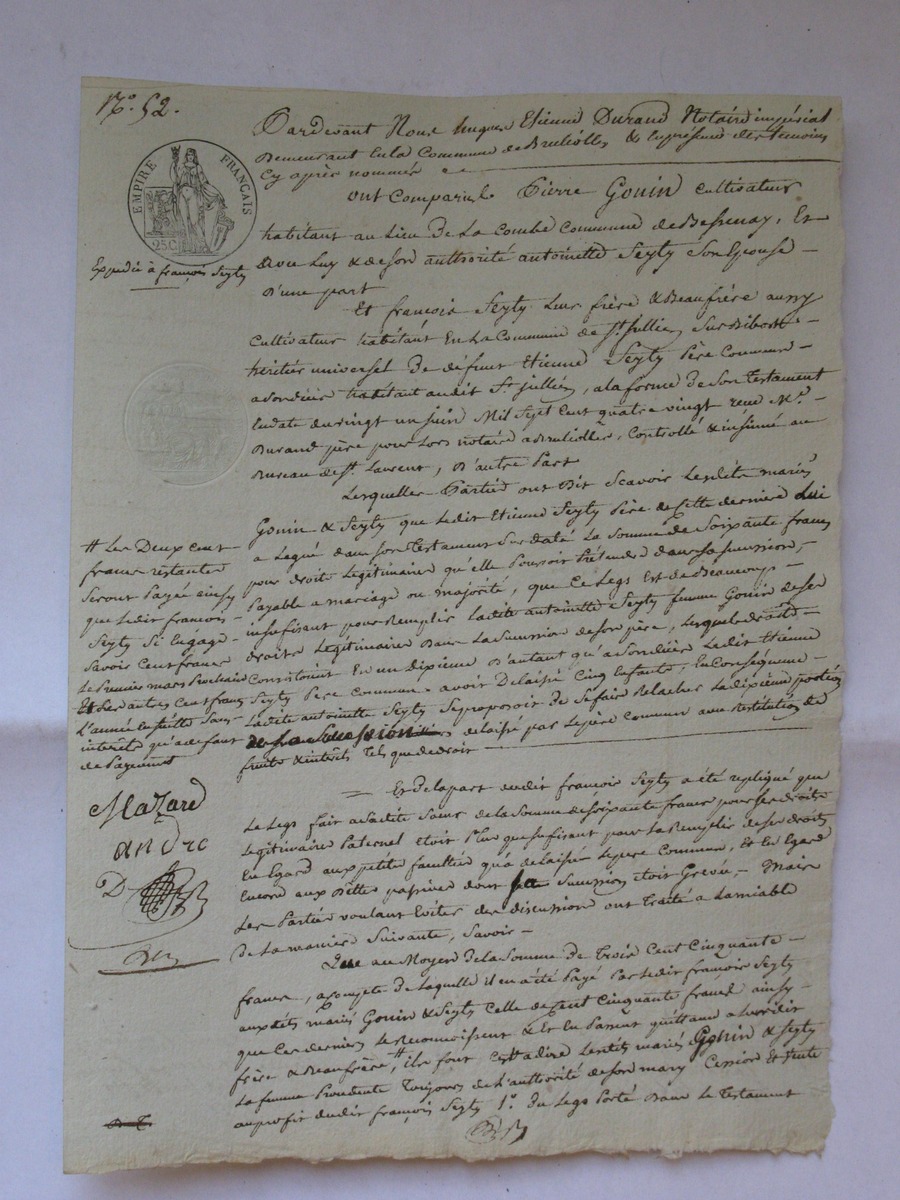 N.° 52.
EMPIRE FRANÇAIS
25 C.
Expedié à françois Seyty
Pardevant Nous hugue Etienne Durand Notaire impérial
Demeurant En la Commune de Brullolles & En présence des temoins
Cy après nommés
ont Comparu Pierre Gonin Cultivateur
habitant au Lieu de La Combe Commune de Bessenay, Et
de Luy & de son authorité antoinette Seyty Son Epouse
D'une part
Et françois Seyty Leur frère & Beaufrère aussy
Cultivateur habitant En La Commune de St Jullien Sur Bibost
héritier universel de défunt Etienne Seyty Père Commun
a Son décès habitant audit St Jullien, a la forme de Son Testament
En date du vingt un juin Mil Sept Cent quatre vingt reçu Me
Durand père pour Lors notaire a Brullolles, Controllé & insinué au
Bureau de St Laurent, D'autre Part
Lesquelles Parties ont Dit Scavoir Lesdits mariés
Gonin & Seyty que Ledit Etienne Seyty Père de Cette dernière Lui
a Legué dans Son Testament Sus daté La Somme de Soixante francs
pour droits Legitimaires qu'elle Pouvoit Prétendre dans Sa Succession,
Payable a mariage ou majorité, que Ce Legs Est de Beaucoup
insufisant pour Remplir Ladite antoinette Seyty femme Gonin de Ses
droits Legitimaires Dans La Succession de Son père, Lesquels droits
Consistoient En un dixième D'autant qu'a Son décès Ledit Etienne
Seyty Père Commun avoit Delaissé Cinq Enfants, En Conséquence
Ladite antoinette Seyty Se proposoit de Se faire Relacher La dixième portion
de La Succession delaissé par Le père Commun avec Restitution de
fruits & intérêts Tels que de droit
Et de la part dudit françois Seyty a été repliqué que
Le Legs fait a Ladite Sœur de La Somme de Soixante francs pour Ses droits
Legitimaires Paternel étoit Plus que Sufisant pour La Remplir de Ses droits
En Egard aux petites facultés qu'a delaissé Le père Commun, Et En Egard
Encore aux Dettes passives dont Sa Succession étoit Grevée, Mais
Les Parties voulant Eviter des discussion ont Traité a Lamiable
De La maniere Suivante, Savoir
Que au Moyen de La Somme de Trois Cent Cinquante
francs, a Compte de Laquelle il en a été Payé Par Ledit françois Seyty
auxdits mariés Gonin & Seyty Celle de Cent Cinquante francs ainsy
que Ces derniers Le Reconnoissent & Et En Passent quittance a Leurdit
frère & Beaufrère, # ils font Cest adire Lesdits mariés Gonin & Seyty
La femme Procédante Toujours de L'authorité de Son mary Cession Et Vente
au profit dudit françois Seyty 1.° Du Legs Porté Dans Le Testament
# Les Deux Cent
francs restantes
Seront Payée ainsy
que Ledit françois
Seyty Si Engage
Savoir Cent francs
Le Premier mars Prochain
Et Les autres Cent francs
L'année En Suitte Sans
interets qu'a defaut
de Payement
Mazard
andre
D